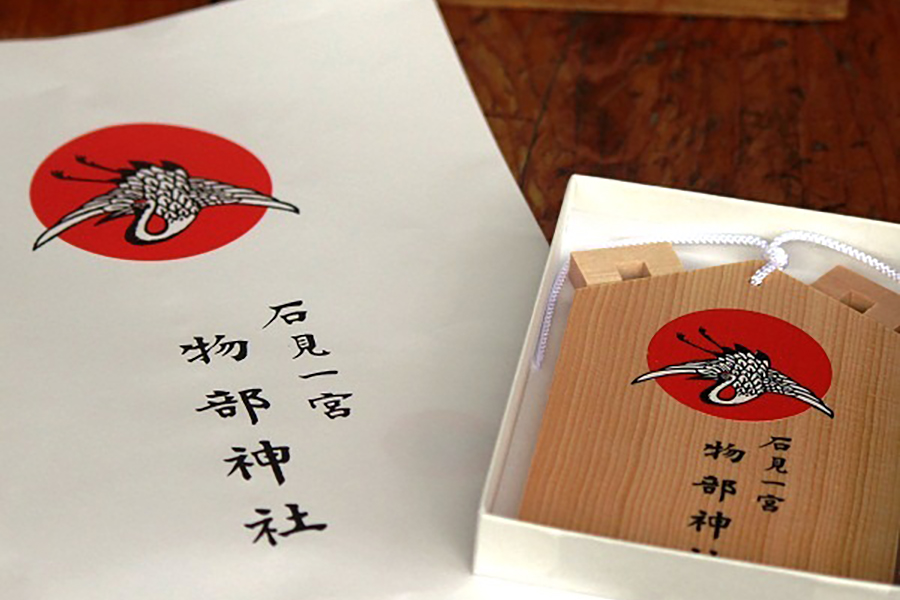 石見一宮
物部神社
石見一宮
物部神